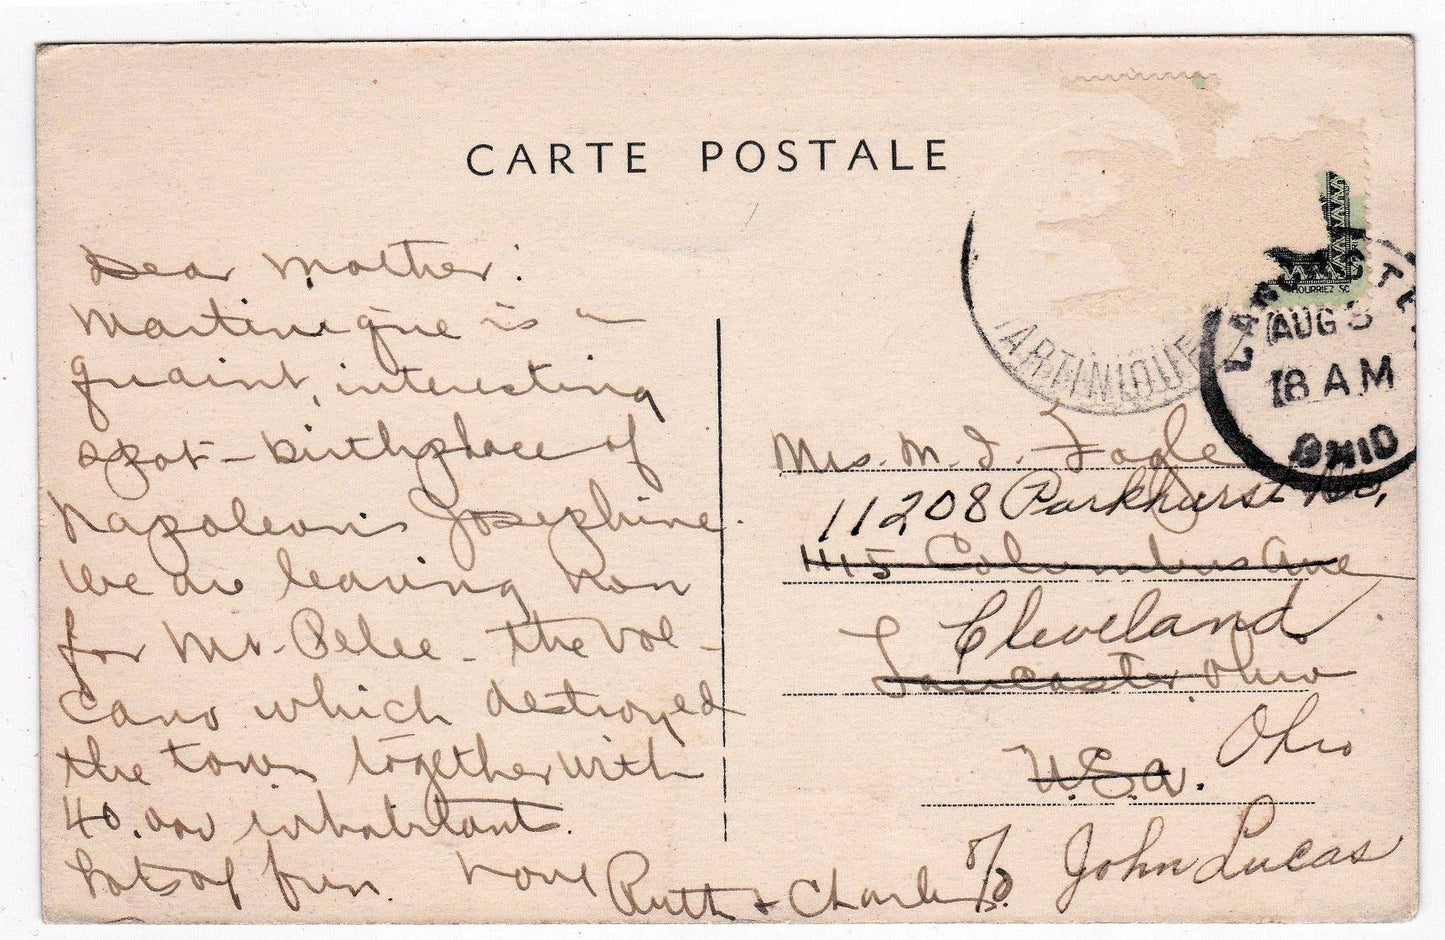 CARTE POSTALE
MOURRIEZ SC
MARTINIQUE
LANCASTER
AUG 3
8 AM
OHIO
Dear Mother:
Martinique is a
quaint, interesting
spot - birthplace of
Napoleon's Josephine.
We are leaving now
for Mt. Pelee - the vol-
cano which destroyed
the town together with
40,000 inhabitants.
Lots of fun. Love Ruth + Charles
Mrs. M. I. Fogle
11208 Parkhurst
415 Columbus Ave
Cleveland
Lancaster, Ohio
Ohio
U.S.A.
c/o John Lucas